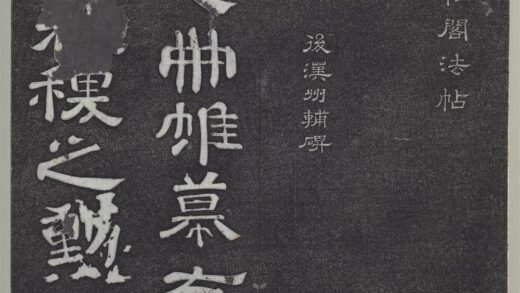 閣法帖
後漢州輔碑
冊帷幕
稷之勳